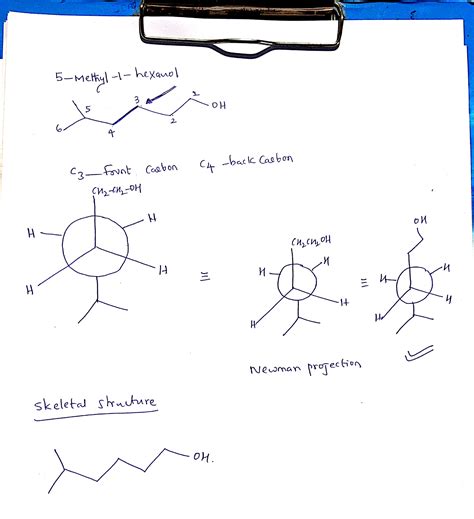 5-Methyl-1-hexanol
5 3 1 OH
6 4 2
C3-Fount Carbon C4-back Carbon
CH2-CH2-OH
H H
H H
≡
CH2CH2OH
H H
H H
≡
OH
H H
H H
Newman projection
skeletal structure
OH.